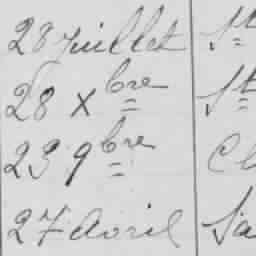 28 Juillet St
28 Xbre St
23 9bre Cl
27 Avril Sa